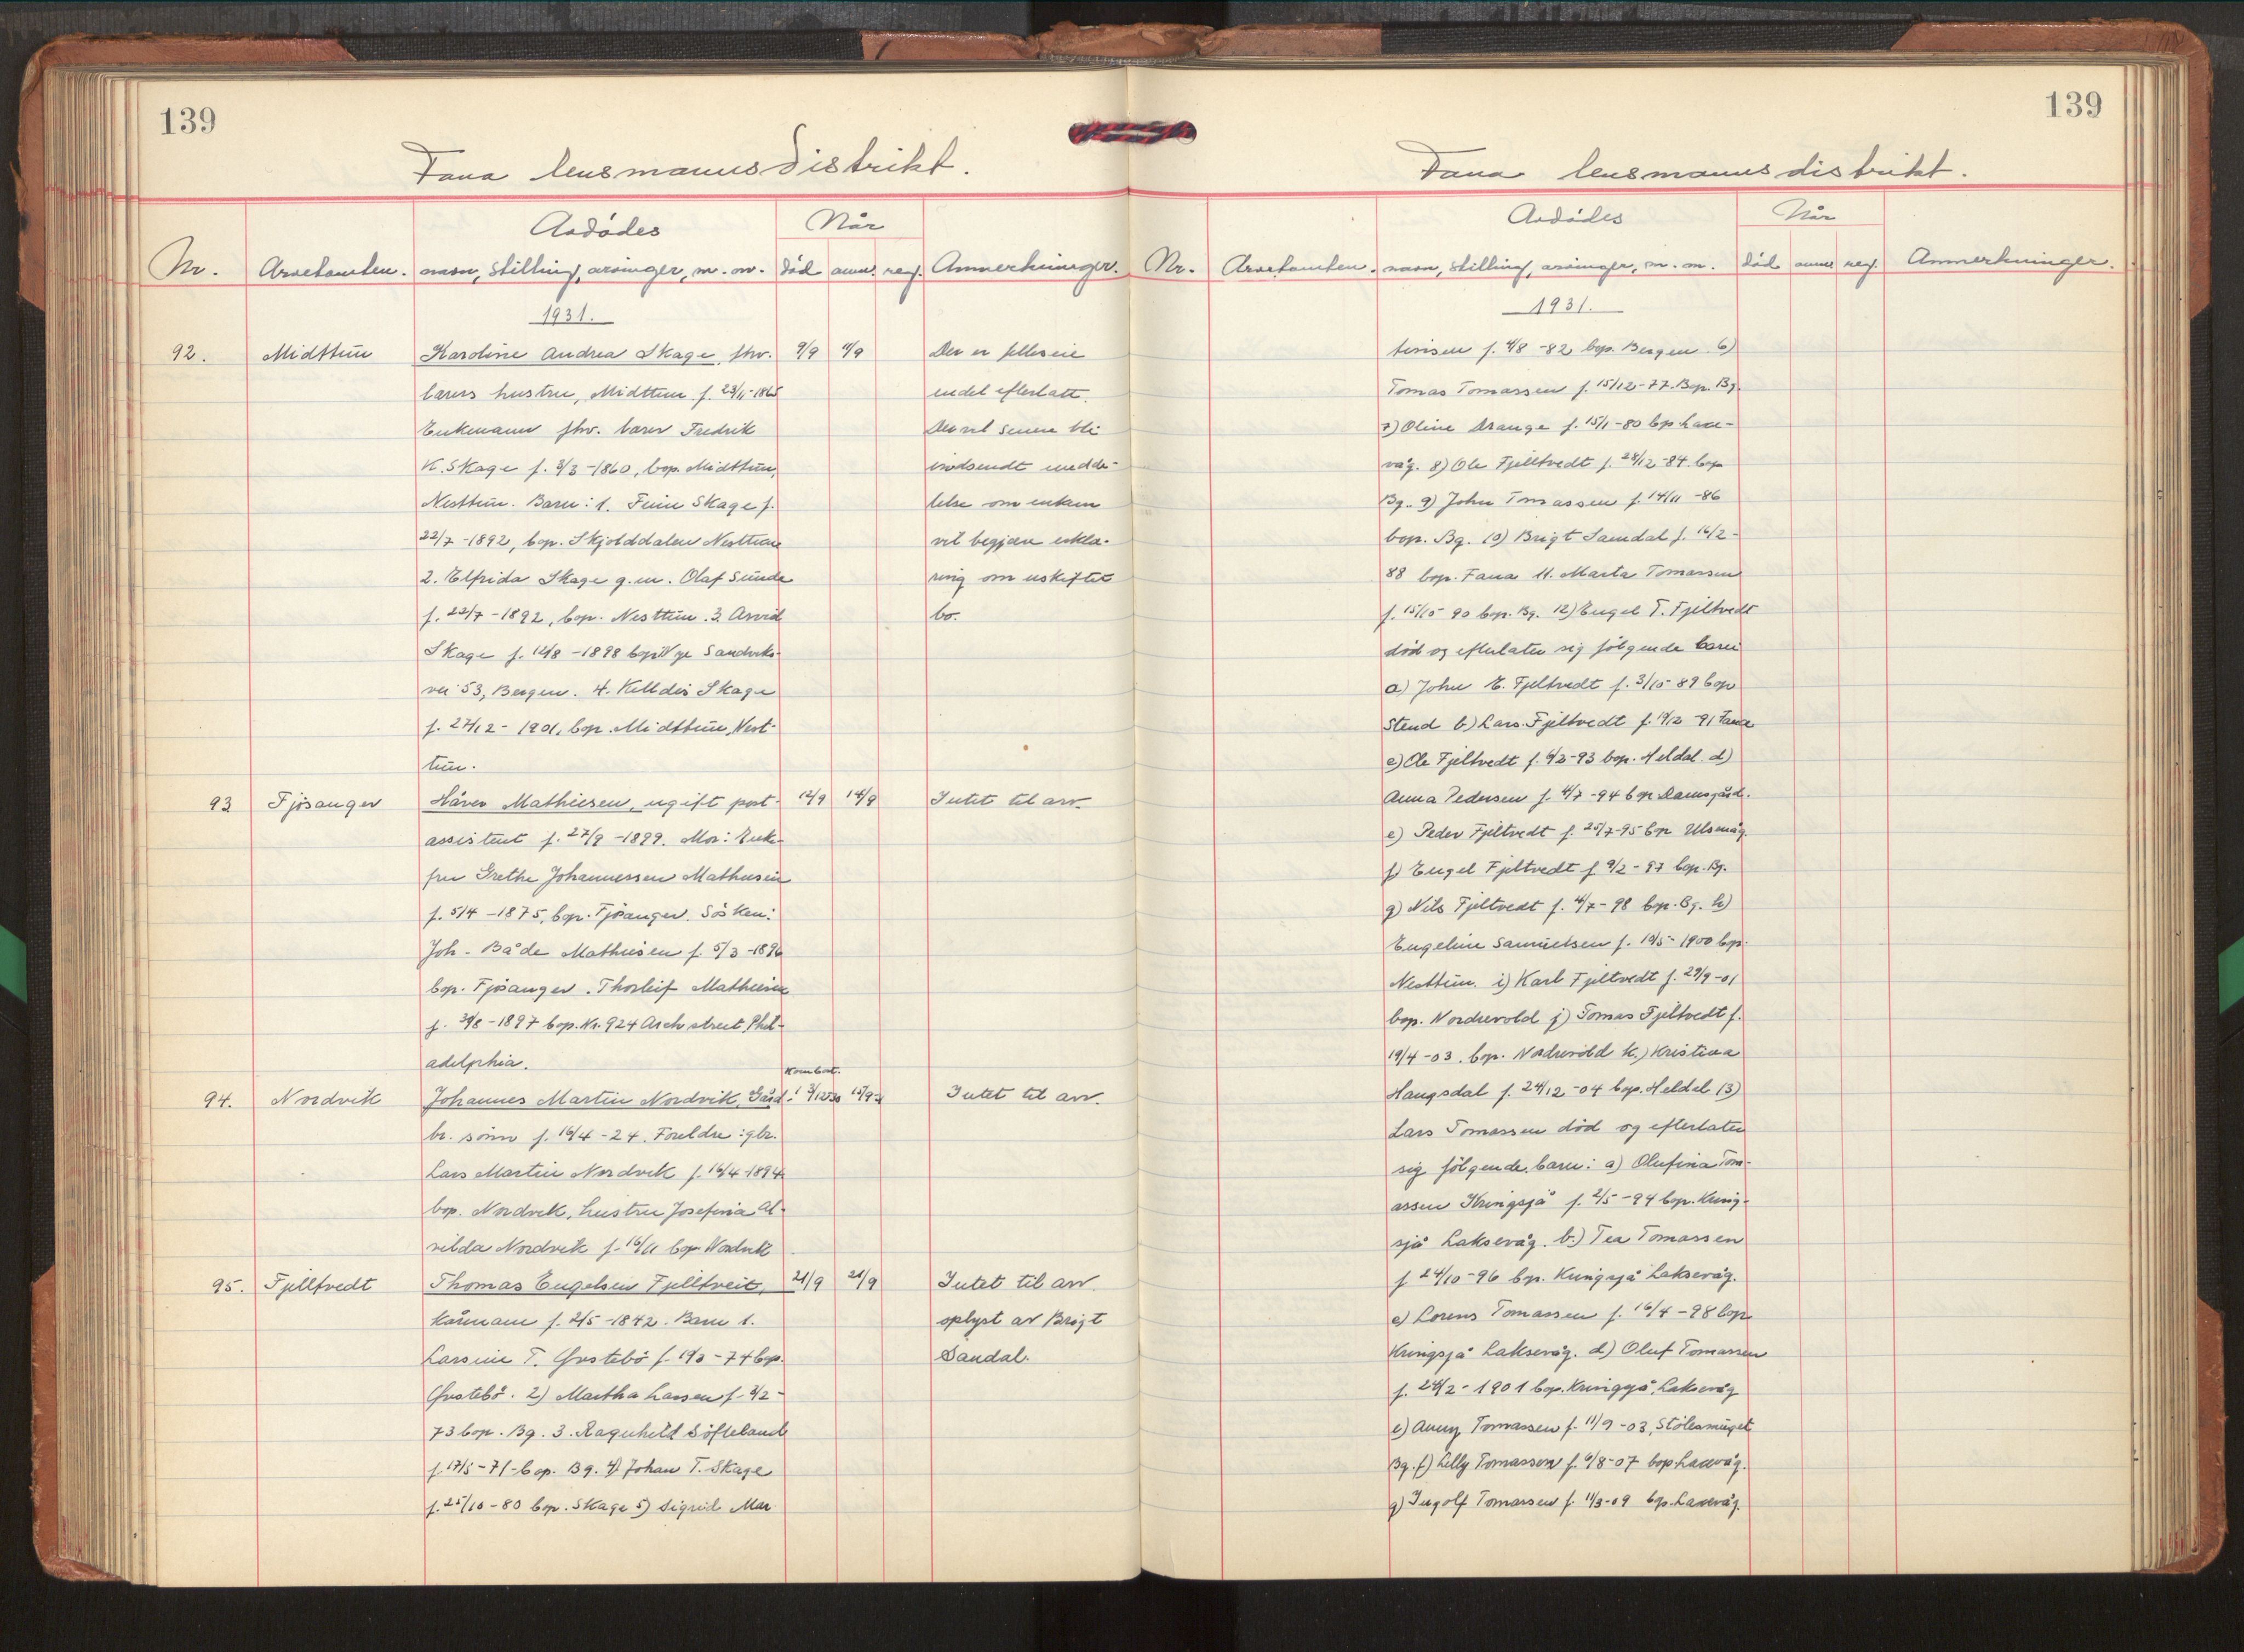 139
Fana lensmannsdistrikt.
Avdödes
Når
Nr. Arvetomten. navn, stilling, arvinger, m. m. död anm. reg. Anmerkninger.
1931.
92. Midttun Karoline Andrea Skage, fhv. 9/9 11/9 Der er felleseie
lærers hustru, Midttun f. 23/11-1865 endel efterlatt.
Enkemann fhv. lærer Fredrik Der vil senere bli
K. Skage f. 3/3-1860, bop. Midttun, innsendt medde-
Nesttun. Barn: 1. Skage f. lelse om enkem
22/7-1892, bop. Skjolddalen Nesttun vil begjære erklæ-
2. Elfrida Skage g.m. Olaf Sunde ring om uskiftet
f. 22/7-1892, bop. Nesttun. 3. Arvid bo.
Skage f. 12/8-1898 bop. Nye Sandviks-
vei 53, Bergen. 4. Kelldis Skage
f. 27/12-1901, bop. Midttun, Nest-
tun.
93 Fjösanger Håver Mathiesen, ugift post- 12/9 14/9 Intet til arv.
assistent f. 27/9-1899. Mor: Enke-
fru Grethe Johannessen Mathiesen
f. 5/4-1875, bop. Fjösanger. Sösken:
Joh. Både Mathiesen f. 5/3-1896
bop. Fjösanger. Thorleif Mathiesen
f. 30/8-1897 bop. Nr. 924 Arch street Phil-
adelphia.
94. Nordvik Johannes Martin Nordvik, Gård- 15/9 Intet til arv.
br. sönn f. 16/4-24. Foreldre: gbr.
Lars Martin Nordvik f. 16/4-1894
bop. Nordvik, hustru Josefina Al-
vilda Nordvik f. 16/11 bop. Nordvik
95. Fjelltvedt Thomas Engelsen Fjelltveit, 21/9 21/9 Intet til arv.
kårmann f. 2/5-1842. Barn 1. oplyst av Brigt
Larsine T. f. 19/3-74 bop. Sandal.
2) Martha Larsen f. 3/2-
73 bop. Bg. 3. Ragnhild Söfteland
f. 17/5-71-bop. Bg. 4) Johan T. Skage
f. 25/10-80 bop. Skage 5) Sigrid Mar
139
Fana lensmannsdistrikt.
Avdödes
Når
Nr. Arvetomten. navn, stilling, arvinger, m. m. död anm. reg. Anmerkninger.
1931.
tinisen f. 4/8-82 bop. Bergen. 6)
Tomas Tomassen f. 15/12-77. Bop. Bg.
7) Oline Drange f. 15/1-80 bop Laxe-
våg. 8) Ole Fjelltvedt f. 28/12-84. bop
Bg. 9) John Tomassen f. 14/11-86
bop. Bg. 10) Brigt Samdal f. 16/2-
88 bop. Fana 11. Marta Tomassen
f. 15/10 90 bop. Bg. 12) Engel T. Fjeltvedt
död og efterlater sig fölgende barn
a) John E. Fjeltvedt f. 3/10 89 bop
Stend b) Lars. Fjeltvedt f. 19/12-91 Fana
c) Ole Fjeltvedt f. 6/2-93 bop. Heldal. d)
Anna Pedersen f. 4/7-94 bop Damsgård.
e) Peder Fjeltvedt f. 25/7-95 bop Ulsmåg.
f) Engel Fjeltvedt f. 9/2-97 bop. Bg.
g) Nils Fjeltvedt f. 4/7-98 bop. Bg. h)
Engeline Samuelsen f. 10/5-1900 bop.
Nesttun. i) Karl Fjeltvedt f. 29/9-01
bop. Nordrevold j) Tomas Fjeltvedt f.
19/4-03. bop. Nordrevold k.) Kristina
Haugsdal f. 24/12-04 bop. Heldal 13)
Lars Tomassen död og efterlater
sig fölgende barn: a) Olufina Tom-
assen Kringsjå f. 2/5-94 bop. Kring-
sjå Laksevåg. b.) Tea Tomassen
f 24/10-96 bop. Kringsjå Laksevåg.
c) Lorens Tomassen f. 16/4-98 bop
Kringsjå Laksevåg. d) Oluf Tomassen
f. 24/2-1901 bop. Kringsjå, Laksevåg
e) Anny Tomassen f. 11/9-03, Stölesmuget
Bg. f) Lilly Tomassen f. 6/8-07 bop Laxevåg.
g) Ingolf Tomassen f. 11/3-09 bop. Laxevåg.